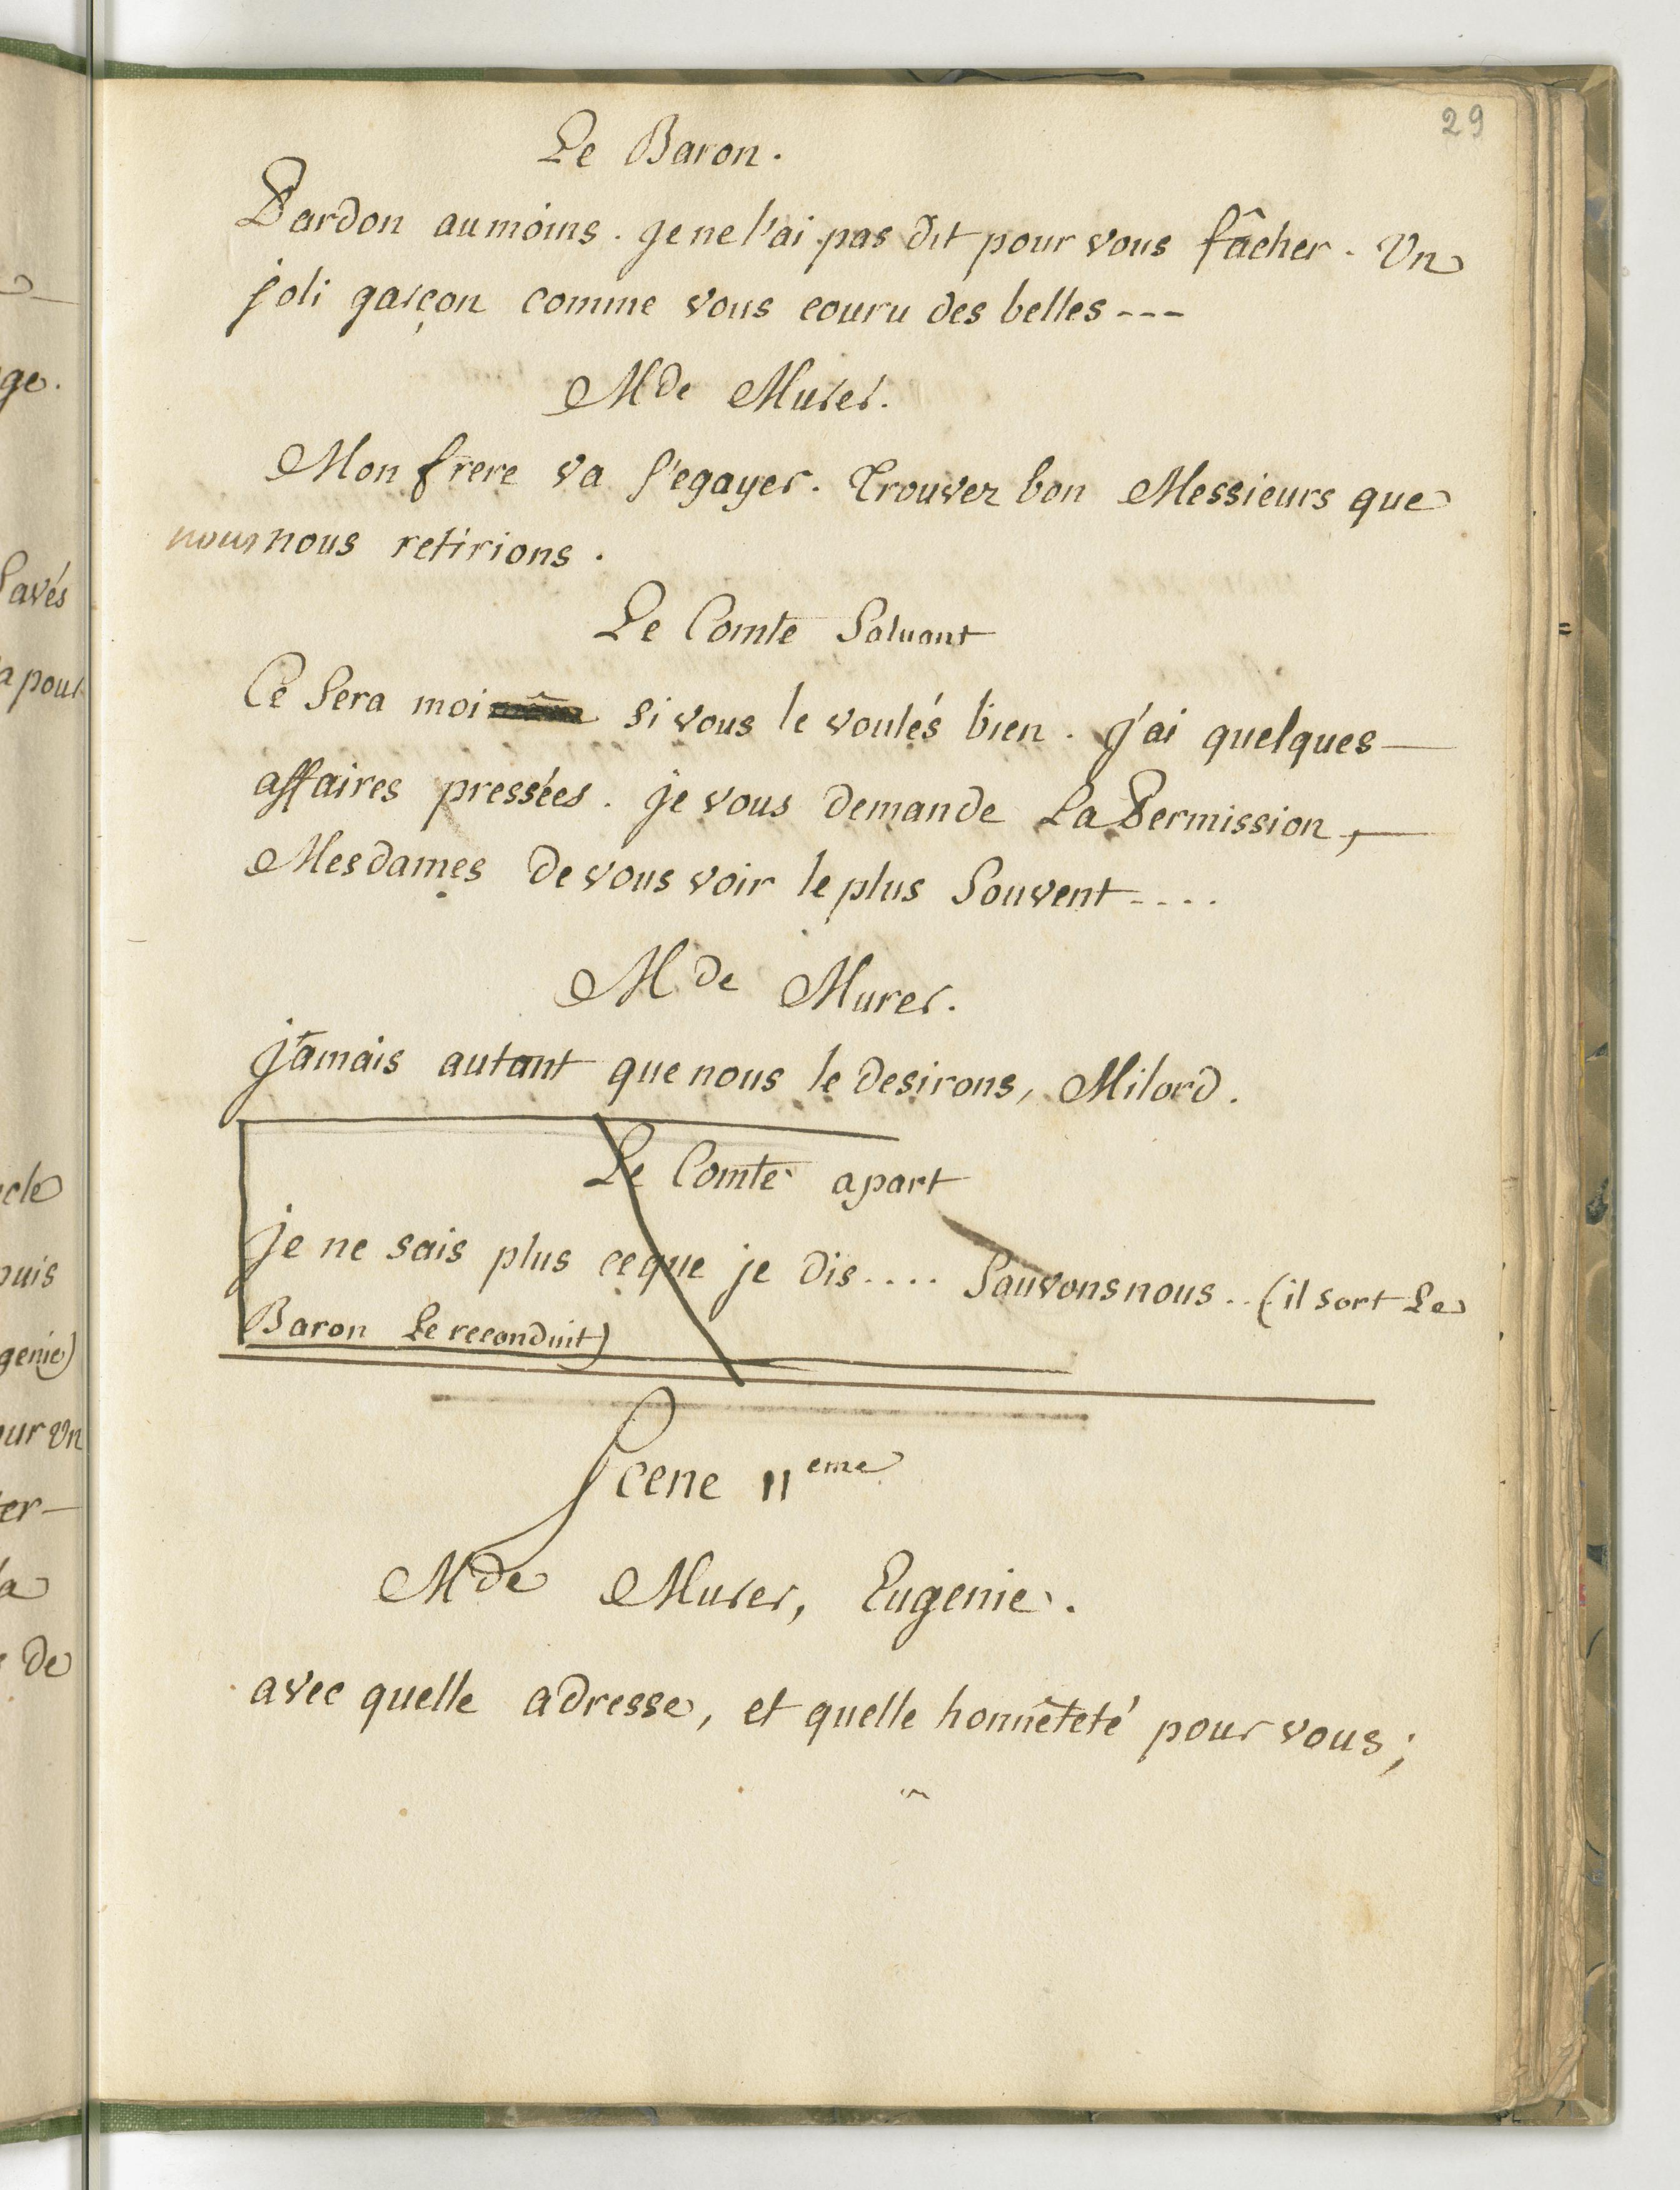 29
Le Baron.
Pardon aumoins. je ne l'ai pas dit pour vous fâcher. Un
joli garçon comme vous couru des belles---
Mde Murer.
Mon frere va s'egayer. Trouvez bon Messieurs que
nous nous retirions.
Le Comte Saluant
Ce Sera moi si vous le voulés bien. j'ai quelques
affaires pressées. je vous demande La Permission,
Mesdames de vous voir le plus Souvent....
Mde Murer.
jamais autant que nous le desirons, Milord.
Le Comte apart
je ne sais plus ceque je dis.... Sauvons nous.. (il sort Le
Baron Le reconduit)
Scene 11eme
Mde Murer, Eugenie.
avec quelle adresse, et quelle honnêteté pour vous;
ge.
Savés
a pour
cle
puis
genie)
our Un
er
la
de